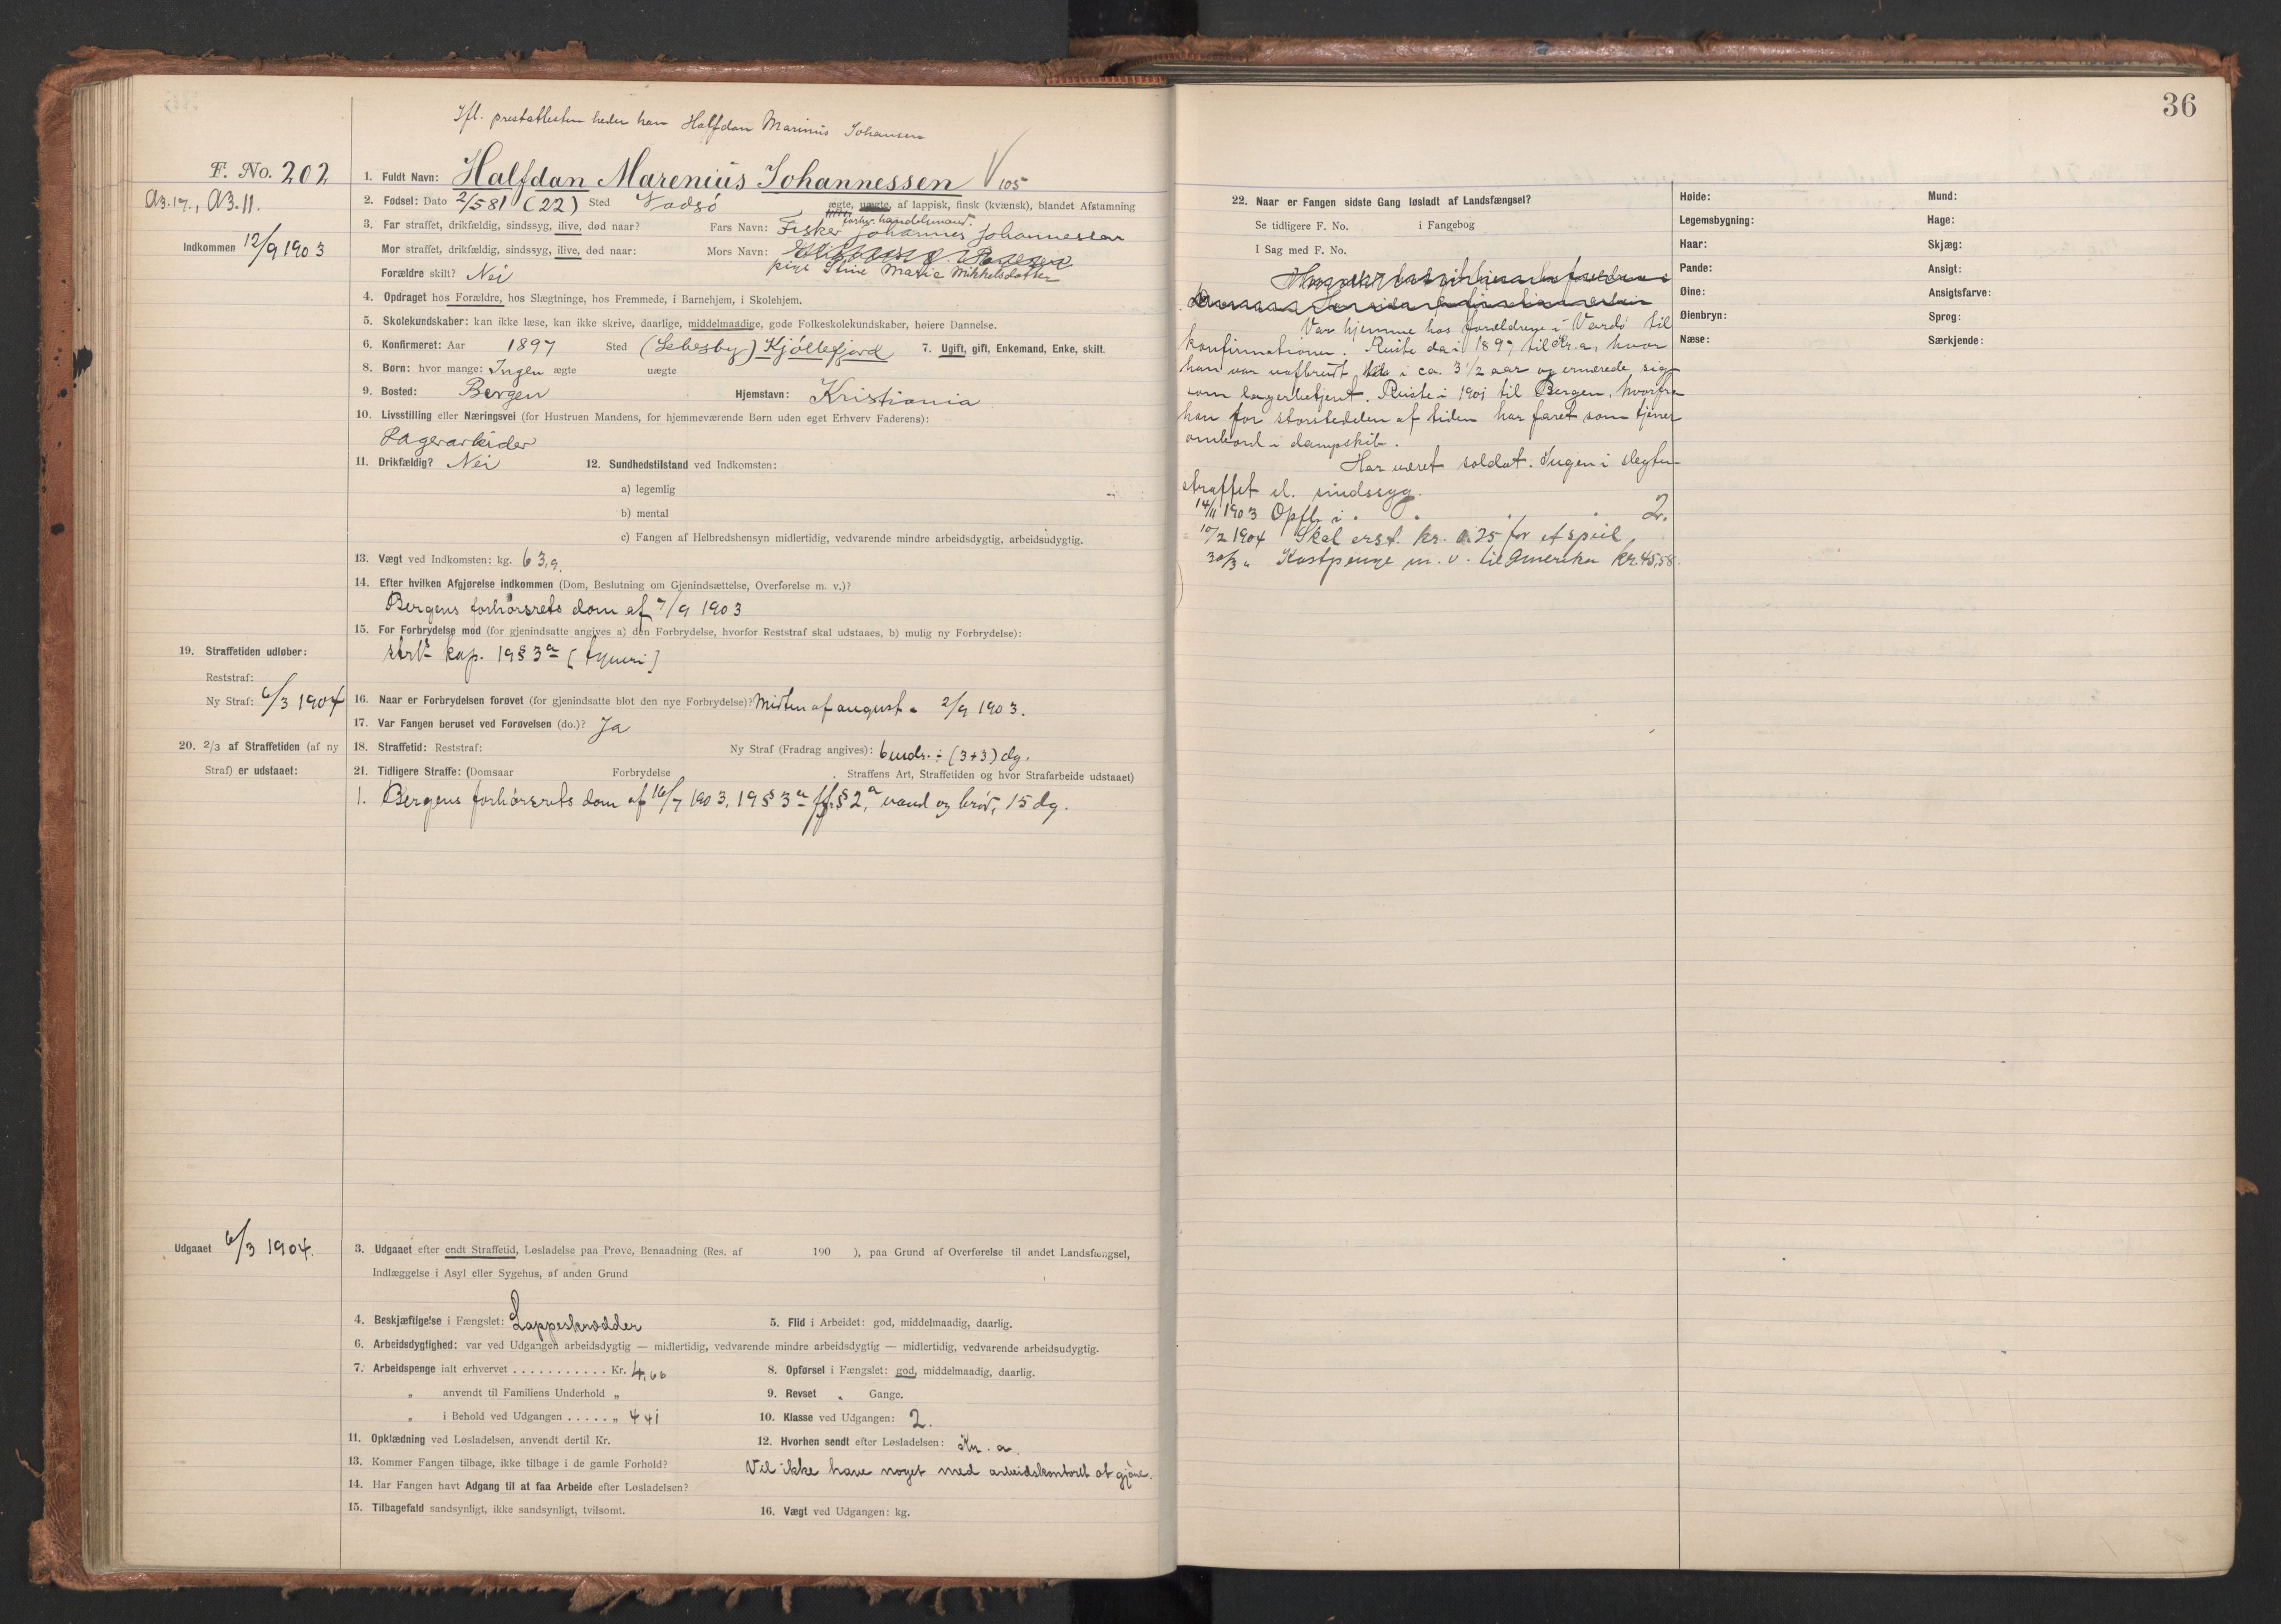 36
Ifl. prestattesten heder han Halfdan Marinius Johansen
F. No. 202
A3.17., A3.11.
Indkommen 12/9 1903
1. Fuldt Navn: Halfdan Marenius Johannessen V 105
2. Fødsel: Dato 2/5 81 (22) Sted Vadsö ægte, uægte, af lappisk, finsk (kvænsk), blandet Afstamning
forhv. handelsmand
3. Far straffet, drikfældig, sindssyg, ilive, død naar? Fars Navn: Fisker Johannes Johannessen
Mor straffet, drikfældig, sindssyg, ilive, død naar: Mors Navn:
pige Stine Maria Mikkelsdatter
Forældre skilt? Nei
4. Opdraget hos Forældre, hos Slægtninge, hos Fremmede, i Barnehjem, i Skolehjem.
5. Skolekundskaber: kan ikke læse, kan ikke skrive, daarlige, middelmaadige, gode Folkeskolekundskaber, høiere Dannelse.
6. Konfirmeret: Aar 1897 Sted (Lebesby) Kjöllefjord 7. Ugift, gift, Enkemand, Enke, skilt.
8. Børn: hvor mange: Ingen ægte uægte
9. Bosted: Bergen Hjemstavn: Kristiania
10. Livsstilling eller Næringsvei (for Hustruen Mandens, for hjemmeværende Børn uden eget Erhverv Faderens):
Lagerarbeider
11. Drikfældig? Nei 12. Sundhedstilstand ved Indkomsten:
a) legemlig
b) mental
c) Fangen af Helbredshensyn midlertidig, vedvarende mindre arbeidsdygtig, arbeidsudygtig.
13. Vægt ved Indkomsten: kg. 63,9.
14. Efter hvilken Afgjørelse indkommen (Dom, Beslutning om Gjenindsættelse, Overførelse m. v.)?
Bergens forhörsrets dom af 7/9 1903
15. For Forbrydelse mod (for gjenindsatte angives a) den Forbrydelse, hvorfor Reststraf skal udstaaes, b) mulig ny Forbrydelse):
strl's kap. 19 § 3 a [tyveri]
19. Straffetiden udløber:
Reststraf:
Ny Straf: 6/3 1904
16. Naar er Forbrydelsen forøvet (for gjenindsatte blot den nye Forbrydelse)? Midten af august - 2/9 1903.
17. Var Fangen beruset ved Forøvelsen (do.)? Ja
20. 2/3 af Straffetiden (af ny
Straf) er udstaaet:
18. Straffetid: Reststraf: Ny Straf (Fradrag angives): 6 mdr. ÷ (3+3) dg.
21. Tidligere Straffe: (Domsaar Forbrydelse Straffens Art, Straffetiden og hvor Strafarbeide udstaaet)
1. Bergens forhörsrets dom af 16/7 1903, 19 § 3 a jfr. § 2, a vand og bröd, 15 dg.
Udgaaet 6/3 1904.
3. Udgaaet efter endt Straffetid, Løsladelse paa Prøve, Benaadning (Res. af 190 ), paa Grund af Overførelse til andet Landsfængsel,
Indlæggelse i Asyl eller Sygehus, af anden Grund
4. Beskjæftigelse i Fængslet: Lappeskrædder 5. Flid i Arbeidet: god, middelmaadig, daarlig.
6. Arbeidsdygtighed: var ved Udgangen arbeidsdygtig — midlertidig, vedvarende mindre arbeidsdygtig — midlertidig, vedvarende arbeidsudygtig.
7. Arbeidspenge ialt erhvervet . . . . . . . . . . . Kr. 4,66 8. Opførsel i Fængslet: god, middelmaadig, daarlig.
„ anvendt til Familiens Underhold „ 9. Revset „ Gange.
„ i Behold ved Udgangen . . . . . „ 4 41 10. Klasse ved Udgangen: 2.
11. Opklædning ved Løsladelsen, anvendt dertil Kr. 12. Hvorhen sendt efter Løsladelsen: Kr. a.
13. Kommer Fangen tilbage, ikke tilbage i de gamle Forhold? Vil ikke have noget med arbeidskontoret at gjöre.
14. Har Fangen havt Adgang til at faa Arbeide efter Løsladelsen?
15. Tilbagefald sandsynligt, ikke sandsynligt, tvilsomt. 16. Vægt ved Udgangen: kg.
22. Naar er Fangen sidste Gang løsladt af Landsfængsel?
Se tidligere F. No. i Fangebog
I Sag med F. No.
Var hjemme hos forældrene i Vardö til
konfirmationen. Reiste da i 1897 til Kr.a, hvor
han var uafbrudt i ca. 3 1/2 aar og ernærede sig
som lagerbetjent. Reiste i 1901 til Bergen, hvorfra
han for störstedelen af tiden har faret som tjener
ombord i dampskib.
Har været soldat. Ingen i slegten
straffet el. sindssyg.
14/11 1903 Opfl. i . . . . 2.
10/2 1904 Skal erst. kr. 0.25 for et speil
30/3 „ Kostpenge m. v. til Amerika kr 45,58.
Høide:
Legemsbygning:
Haar:
Pande:
Øine:
Øienbryn:
Næse:
Mund:
Hage:
Skjæg:
Ansigt:
Ansigtsfarve:
Sprog:
Særkjende: